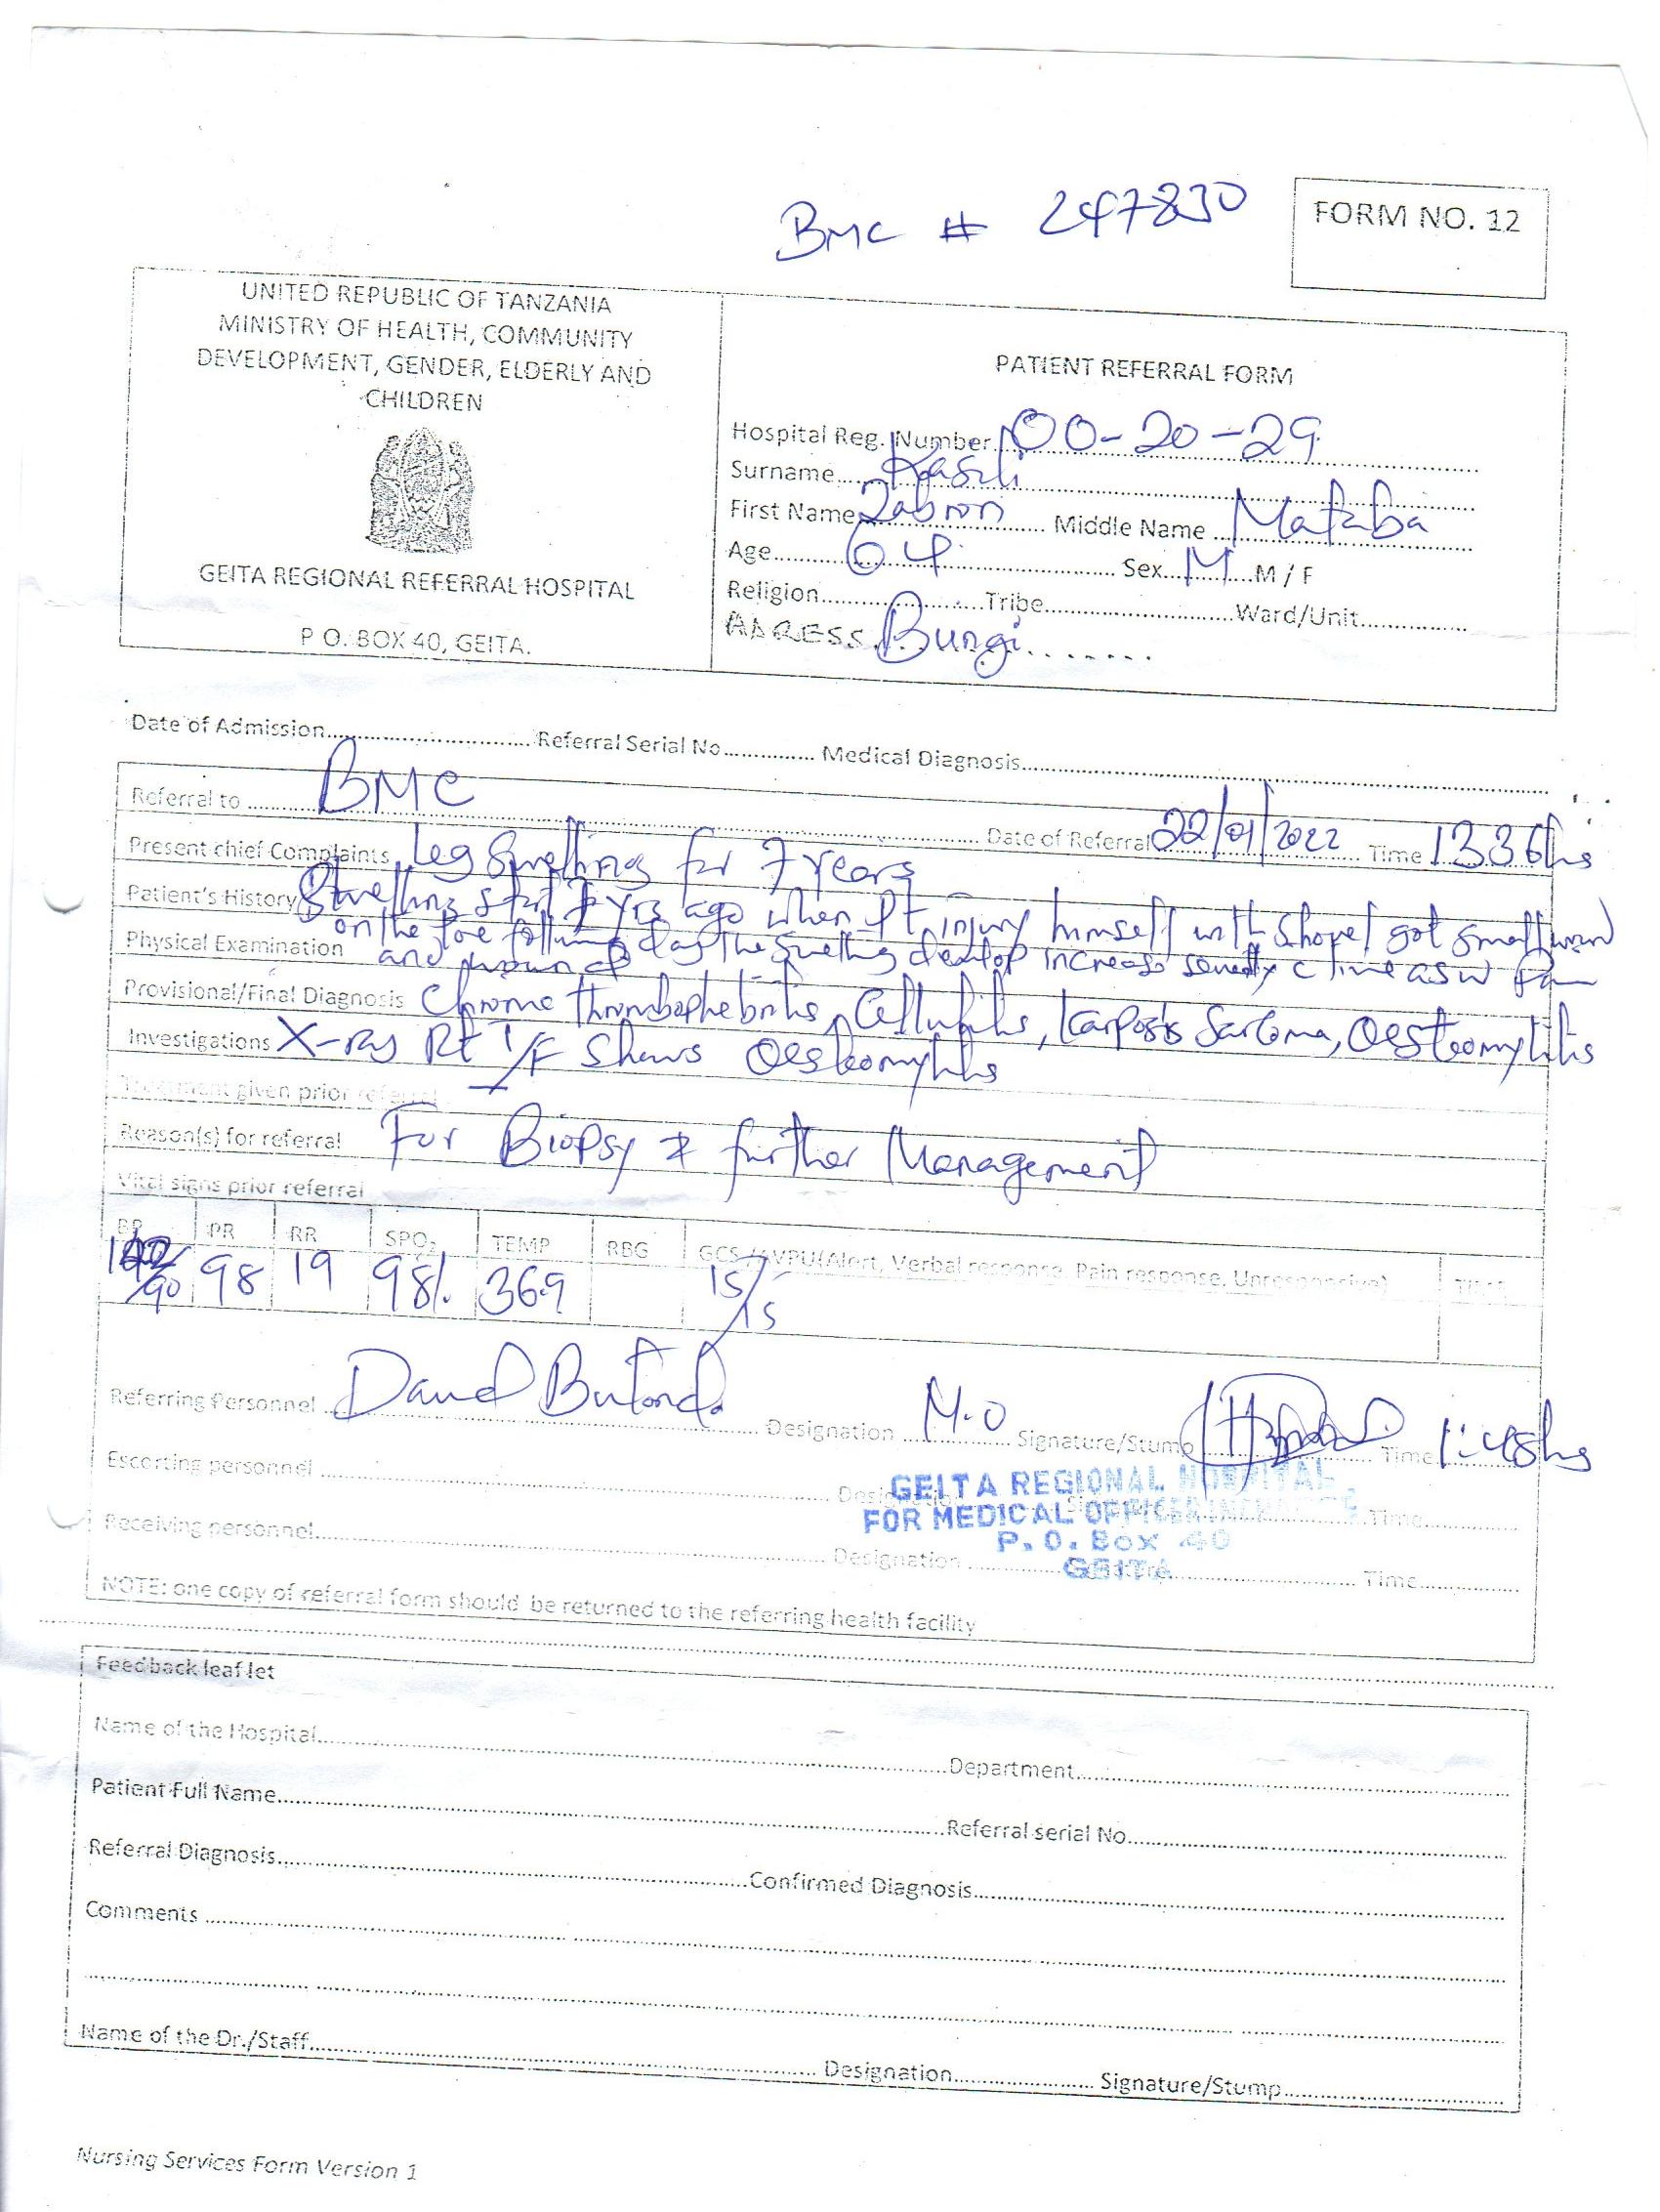 BMC # 247830
FORM NO. 12
UNITED REPUBLIC OF TANZANIA
MINISTRY OF HEALTH, COMMUNITY
DEVELOPMENT, GENDER, ELDERLY AND
CHILDREN
GEITA REGIONAL REFERRAL HOSPITAL
P O. BOX 40, GEITA.
PATIENT REFERRAL FORM
Hospital Reg. Number 00-20-29
Surname
First Name Zabron Middle Name
Age 64 Sex M M / F
Religion Tribe Ward/Unit
ADRESS Bungi
Date of Admission Referral Serial No Medical Diagnosis
Referral to BMC Date of Referral 22/01/2022 Time 1336hs
Present chief Complaints Leg Swelling for 7 years
Patient's History Swelling start 7 yrs ago when Pt injury himself with shovel got small
on the toe following day the swelling develop increase c time
Physical Examination and
Provisional/Final Diagnosis Cellulitis, Sarcoma,
Investigations X-ray Rt T/F Shows
Treatment given prior referral
Reason(s) for referral For Biopsy & further Management
Vital signs prior referral
BP PR RR SPO2 TEMP RBG GCS /AVPU(Alert, Verbal response, Pain response, Unresponsive) TIME
/90 98 19 98% 36.9 15/15
Referring Personnel David Designation M.O Signature/Stump Time 1:48hs
Escorting personnel Designation Time
Receiving personnel Designation Time
GEITA REGIONAL HOSPITAL
FOR MEDICAL OFFICER INCHARGE
P. O. Box 40
GEITA
NOTE: one copy of referral form should be returned to the referring health facility
Feedback leaflet
Name of the Hospital Department
Patient Full Name Referral serial No
Referral Diagnosis Confirmed Diagnosis
Comments
Name of the Dr./Staff Designation Signature/Stump
Nursing Services Form Version 1